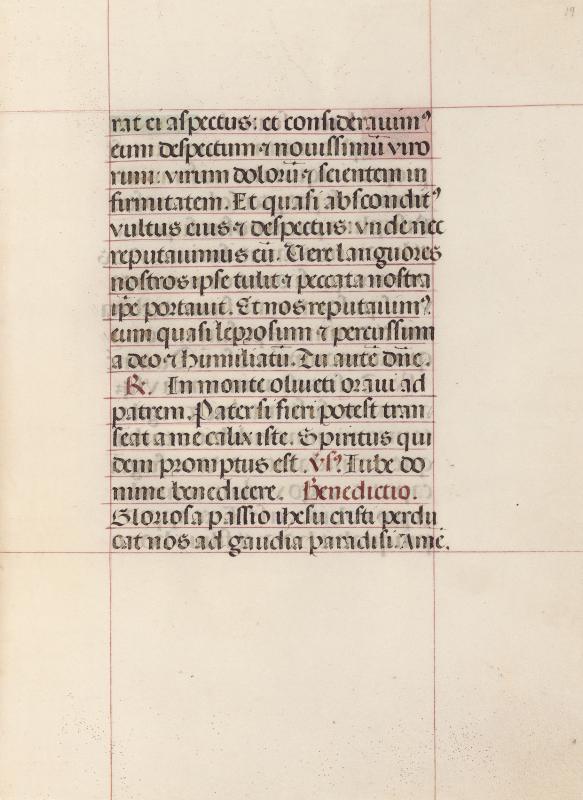 19
rat ei aspectus: et considerauimꝰ
eum despectum ⁊ nouissimū viro
rum: virum dolorū ⁊ scientem in
firmitatem. Et quasi absconditꝰ
vultus eius ⁊ despectus: vnde nec
reputauimus eū. Uere languores
nostros ipse tulit ⁊ peccata nostra
ip̄e portauit. Et nos reputauimꝰ
eum quasi leprosum ⁊ percussum
a deo ⁊ humiliatū. Tu autē dn̄e.
℟. In monte oliueti oraui ad
patrem. Pater si fieri potest tran
seat a me calix iste. Spiritus qui
dem promptus est. vsꝰ. Iube do
mine benedicere. Benedictio.
Gloriosa passio ihesu cristi perdu
cat nos ad gaudia paradisi. Amē.